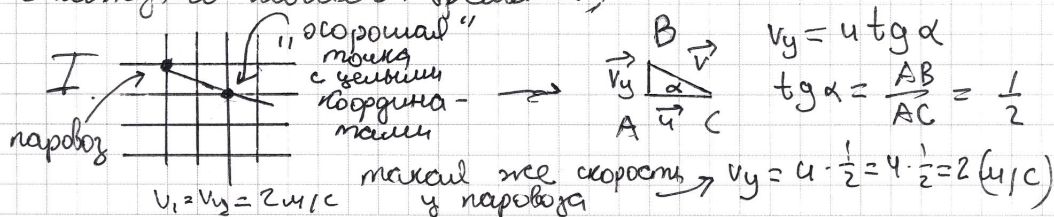 I.
паровоз
„хорошая“
точка
с целыми
координа-
тами
V₁ = Vy = 2 м/с
B
Vy
V
α
A u C
Vy = u tg α
tg α = AB/AC = 1/2
такая же скорость
у паровоза
Vy = u · 1/2 = 4 · 1/2 = 2 (м/с)